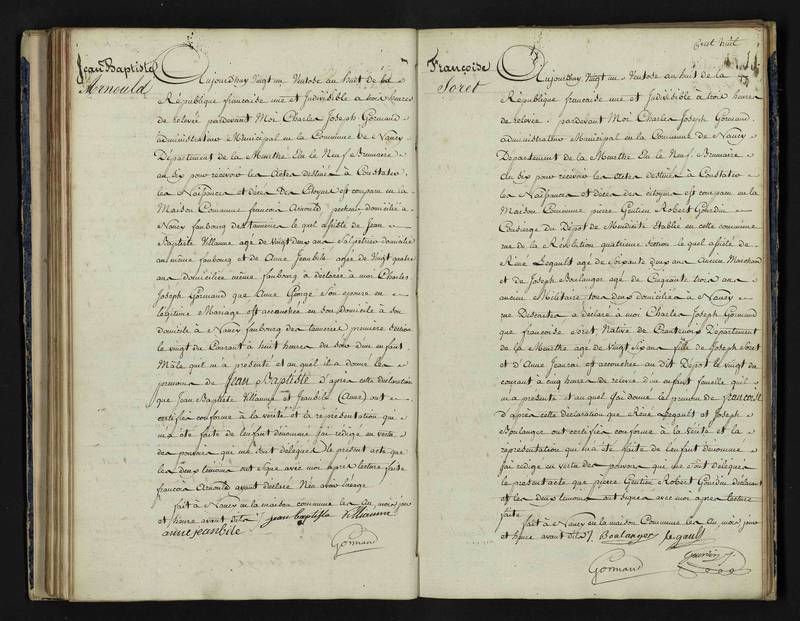 Jean Baptiste
Arnould
Aujourdhuy vingt un Ventose an huit de la
République francaise une et Indivisible a trois heures
de relevée pardevant Moi Charles Joseph Gormand
administrateur Municipal en la Commune de Nancy
Département de la Meurthe Elu le Neuf Brumaire
an six pour recevoir les Actes destinés à Constater
les Naissances et décès des Citoyens est comparu en la
Maison Commune francois Arnould domicilié a
Nancy faubourg des tanneries le quel assisté de Jean
Baptiste Villaume age de vingt deux ans Salpetrier domicilié
au même faubourg et de Anne Jeanbile agée de vingt quatre
ans domiciliée même faubourg a déclaré à moi Charles
Joseph Gormand que Anne George Son epouse en
légitime Mariage est accouchée en son domicile à son
domicile à Nancy faubourg des tanneries première Section
le vingt du Courant à huit heures du soir d'un enfant
Mâle qu'il m'a présenté et au quel il a donné les
prenoms de Jean Baptiste D'après cette déclaration
que Jean Baptiste Villaume et Jeanbile (Anne) ont
certifiée conforme à la vérité et la représentation qui
m'a été faite de l'enfant dénommé j'ai rédigé en vertu
des pouvoirs qui me sont délégués le présent acte que
les deux temoins ont signé avec moi après lecture faite
francois Arnould ayant déclaré Ne savoir
fait à Nancy en la maison commune les an mois jour
et heure avant dits jean baptiste Villaume
anne jeanbile
Gormand
Cent huit
Françoise
Soret
Aujourdhuy vingt un Ventose an huit de la
République francaise une et Indivisible à trois heures
de relevée pardevant Moi Charles Joseph Gormand
administrateur Municipal en la Commune de Nancy
Département de la Meurthe Elu le Neuf Brumaire
an six pour recevoir les actes destinés à Constater
les Naissances et décès des citoyens est comparu en la
Maison Commune pierre Gentien Robert Gourdin
Concierge du Dépot de Mendicité Etablie en cette commune
rue de la Révolution quatrieme Section le quel assisté de
Réné Legault agé de Soixante deux ans ancien Marchand
et de Joseph Boulanger agé de Cinquante trois ans
ancien Militaire tous deux domiciliés à Nancy
rue Descartes a déclaré à moi Charles Joseph Gormand
que francoise Soret, Native de Département
de la Meurthe agé de vingt ans fille de Joseph Soret
et d'Anne est accouchée au dit Dépot le vingt du
courant à cinq heures de relevée d'un enfant femelle qu'il
m'a présenté et au quel j'ai donné le prenom de francoise
D'après cette déclaration que Réné Legault et Joseph
Boulanger ont certifiée conforme à la vérité et la
représentation qui m'a été faite de l'enfant dénommé
j'ai rédigé en vertu des pouvoirs qui me sont délégués
le présent acte que pierre Gentien Robert Gourdin déclarant
et les deux temoins ont signés avec moi après lecture
faite
fait à Nancy en la maison Commune les an mois jour
et heure avant dits J. Boulanger Legault
Gormand Gourdin